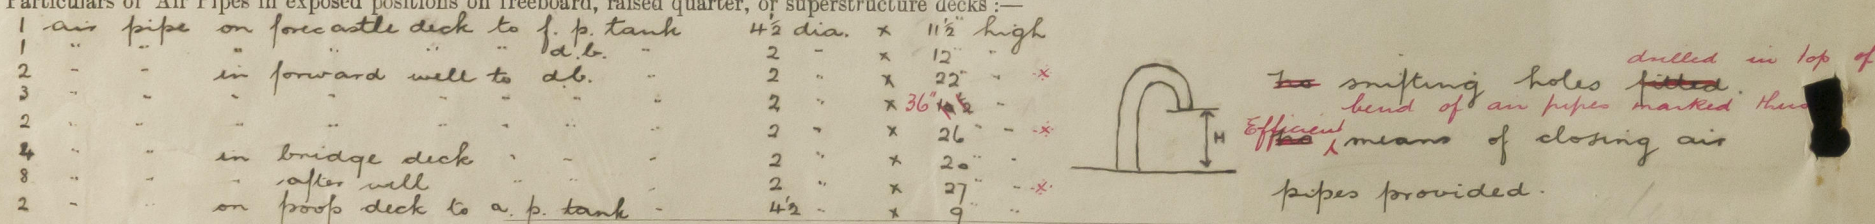 Particulars of Air Pipes in exposed positions on freeboard, raised quarter, or superstructure decks :—
1 air pipe on forecastle deck to f. p. tank 4½ dia. x 11½" high
1 " " " " " d.b. " 2 " x 12" "
2 " " in forward well to d.b. " 2 " x 22" " x
3 " " " " " " " 2 " x 36" "
2 " " " " " " " 2 " x 26" " x
4 " " in bridge deck " " " 2 " x 20" "
8 " " " after well " " " 2 " x 27" " x
2 " " on poop deck to a. p. tank " 4½ " x 9" "
H
drilled in top of
No snifting holes fitted.
bend of air pipes marked thus
Efficient
No means of closing air
pipes provided.